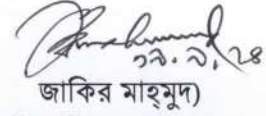 ১৯.৯.২৪
জাকির মাহ্‌মুদ)